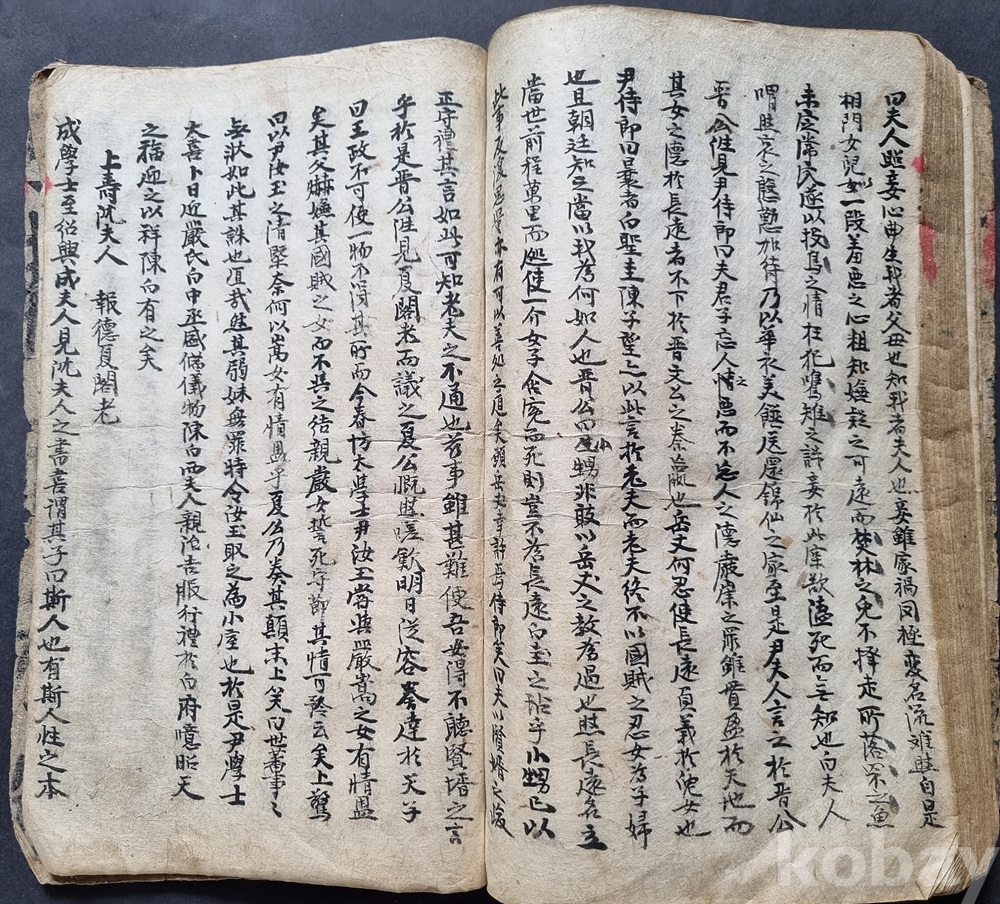 曰夫人然妾心曲生我者父母也知我者夫人也妾雖家禍罔極變名流难然自是
相門女兒如一段羞惡之心粗知嫌疑之可遠而焚林之兔不擇走所落不之魚
未定常也遂以投烏之情枉犯鷹雉之許妾於此寧欲溘死而無知也白夫人
喟然哀之慇懃加待乃以華衣美餙送還錦仙之家至是尹夫人言之於晋公
晋公往見尹侍郎曰夫君子忘人之情惡而不忘人之德嚴嵩之罪雖貫盈於天地而
其女之德於長遠者不下於晋文公之秦嬴也岳丈何忍使長遠負義於兒女也
尹侍郎曰曩者白聖圭陳子望亦以此言於老夫而老夫終不以國賊之忍女爲子婦
也且朝廷知之當以我爲何如人也晋公曰小甥非敢以岳丈之教爲過也然長遠名立
當世前程萬里而忍使一介女子含寃而死則豈不爲長遠白圭之玷乎小甥已以
此事反復思量亦有可以善処之道矣願岳丈幸許焉侍郎笑曰夫以賢婿之俊
正守禮其言如此可知老夫之不通也玆事雖甚難使吾安得不聽賢婿之言
乎於是晋公往見夏閣老而議之夏公慨然嗟歎明日從容奏達於天子
曰王政不可使一物不得其所而今春坊太學士尹汝玉嘗與嚴嵩之女有情盟
矣其父嚇嫌其國賊之女而不与之结親嚴女誓死守節其情可矜云矣上驚
曰以尹汝玉之清堅奈何以嵩女有情盟乎夏公乃奏其顛末上笑曰世蕃事之
無狀如此其誅也冝哉然其弱妹無罪特令汝玉取之爲小室也於是尹學士
大喜卜日迎嚴氏白中丞盛備儀物陳白兩夫人親治吉服行禮於白府噫昭天
之福迎之以祥陳白有之矣
上壽沈夫人 報德夏閣老
成學士至紹興成夫人見沈夫人之書喜謂其子曰斯人也有斯人性之本
kobay